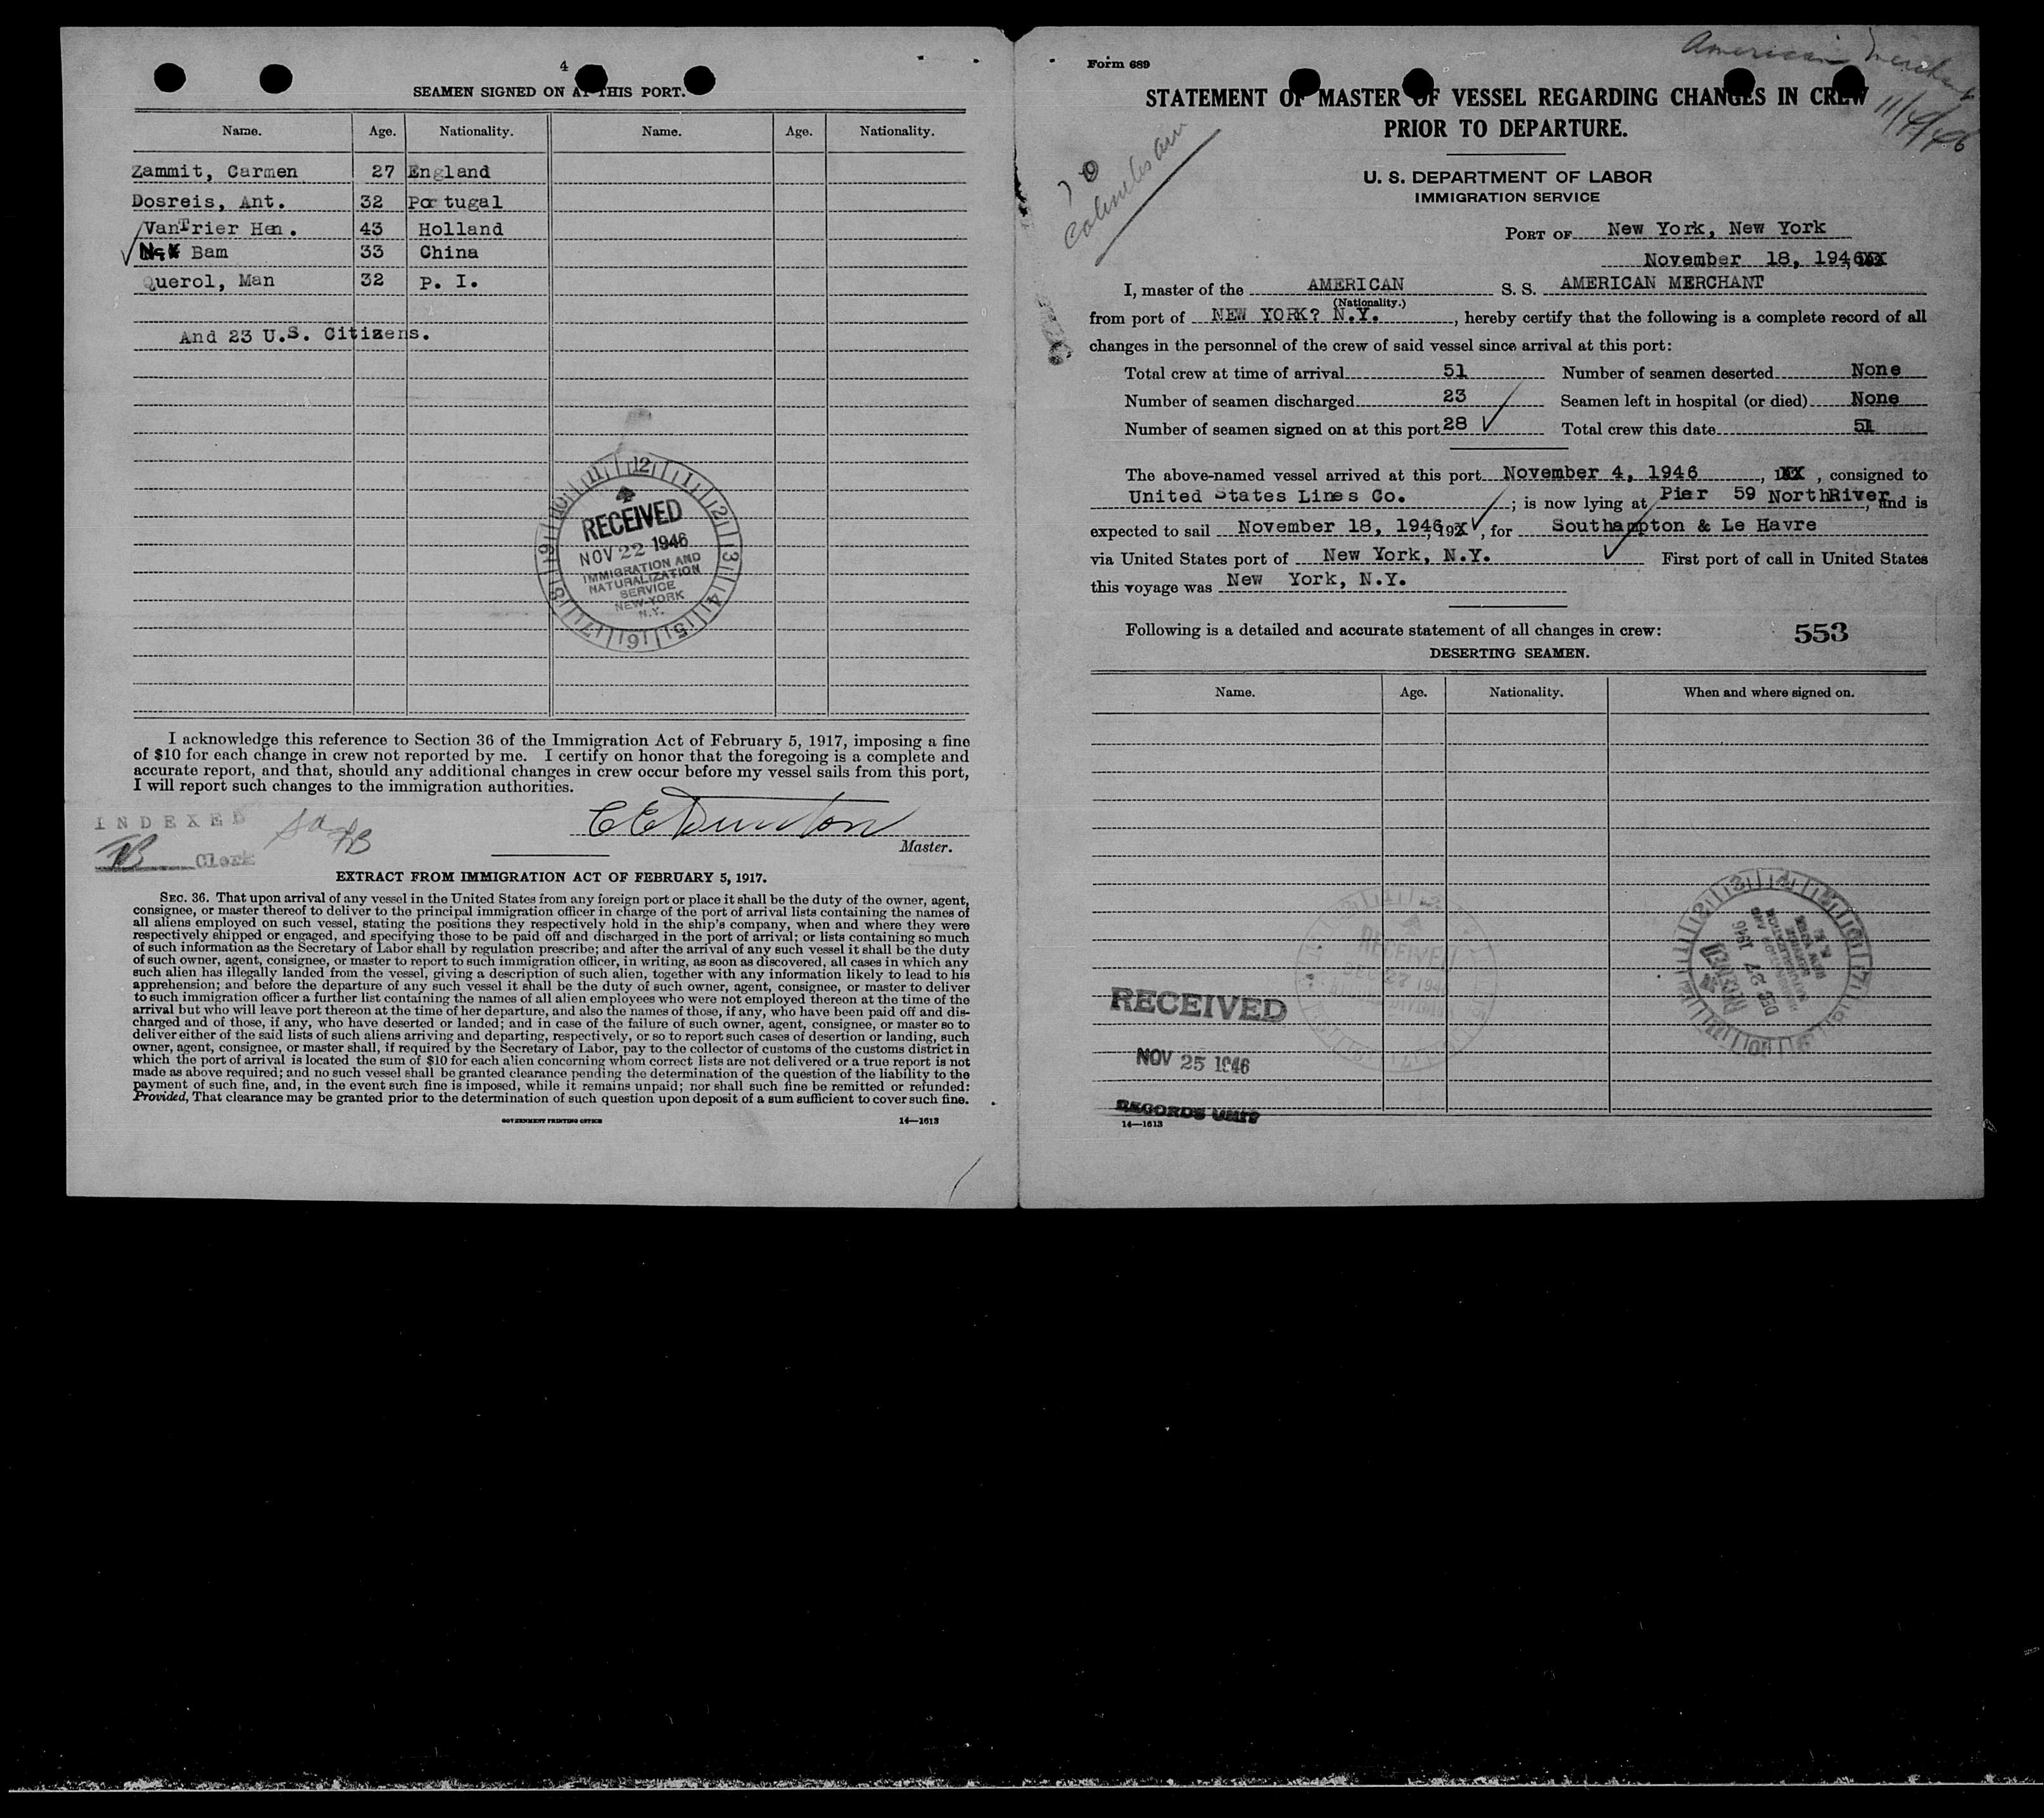 4
SEAMEN SIGNED ON AT THIS PORT.
Name. Age. Nationality. Name. Age. Nationality.
Zammit, Carmen 27 England
Dosreis, Ant. 32 Portugal
VanTrier Hen. 43 Holland
Bam 33 China
Querol, Man 32 P. I.
And 23 U.S. Citizens.
12 1 2 3 4 5 6 7 8 9 10 11
RECEIVED
NOV 22 1946
IMMIGRATION AND
NATURALIZATION
SERVICE
NEW YORK
N.Y.
I acknowledge this reference to Section 36 of the Immigration Act of February 5, 1917, imposing a fine
of $10 for each change in crew not reported by me. I certify on honor that the foregoing is a complete and
accurate report, and that, should any additional changes in crew occur before my vessel sails from this port,
I will report such changes to the immigration authorities.
C E Dunton
Master.
INDEXED
Clerk
EXTRACT FROM IMMIGRATION ACT OF FEBRUARY 5, 1917.
SEC. 36. That upon arrival of any vessel in the United States from any foreign port or place it shall be the duty of the owner, agent,
consignee, or master thereof to deliver to the principal immigration officer in charge of the port of arrival lists containing the names of
all aliens employed on such vessel, stating the positions they respectively hold in the ship's company, when and where they were
respectively shipped or engaged, and specifying those to be paid off and discharged in the port of arrival; or lists containing so much
of such information as the Secretary of Labor shall by regulation prescribe; and after the arrival of any such vessel it shall be the duty
of such owner, agent, consignee, or master to report to such immigration officer, in writing, as soon as discovered, all cases in which any
such alien has illegally landed from the vessel, giving a description of such alien, together with any information likely to lead to his
apprehension; and before the departure of any such vessel it shall be the duty of such owner, agent, consignee, or master to deliver
to such immigration officer a further list containing the names of all alien employees who were not employed thereon at the time of the
arrival but who will leave port thereon at the time of her departure, and also the names of those, if any, who have been paid off and dis-
charged and of those, if any, who have deserted or landed; and in case of the failure of such owner, agent, consignee, or master so to
deliver either of the said lists of such aliens arriving and departing, respectively, or so to report such cases of desertion or landing, such
owner, agent, consignee, or master shall, if required by the Secretary of Labor, pay to the collector of customs of the customs district in
which the port of arrival is located the sum of $10 for each alien concerning whom correct lists are not delivered or a true report is not
made as above required; and no such vessel shall be granted clearance pending the determination of the question of the liability to the
payment of such fine, and, in the event such fine is imposed, while it remains unpaid; nor shall such fine be remitted or refunded:
Provided, That clearance may be granted prior to the determination of such question upon deposit of a sum sufficient to cover such fine.
GOVERNMENT PRINTING OFFICE 14—1613
American Merchant
11/4/46
Form 689
STATEMENT OF MASTER OF VESSEL REGARDING CHANGES IN CREW
PRIOR TO DEPARTURE.
U. S. DEPARTMENT OF LABOR
IMMIGRATION SERVICE
PORT OF New York, New York
November 18, 1946
I, master of the AMERICAN S. S. AMERICAN MERCHANT
(Nationality.)
from port of NEW YORK? N.Y. , hereby certify that the following is a complete record of all
changes in the personnel of the crew of said vessel since arrival at this port:
Total crew at time of arrival 51 Number of seamen deserted None
Number of seamen discharged 23 Seamen left in hospital (or died) None
Number of seamen signed on at this port 28 Total crew this date 51
The above-named vessel arrived at this port November 4, 1946 , , consigned to
United States Lines Co. ; is now lying at Pier 59 NorthRiver, and is
expected to sail November 18, 1946, , for Southampton & Le Havre
via United States port of New York, N.Y. First port of call in United States
this voyage was New York, N.Y.
Following is a detailed and accurate statement of all changes in crew: 553
DESERTING SEAMEN.
Name. Age. Nationality. When and where signed on.
RECEIVED
DEC 27 1946
RECEIVED
DEC 27 1946
RECEIVED
NOV 25 1946
RECORDS UNIT
14—1613